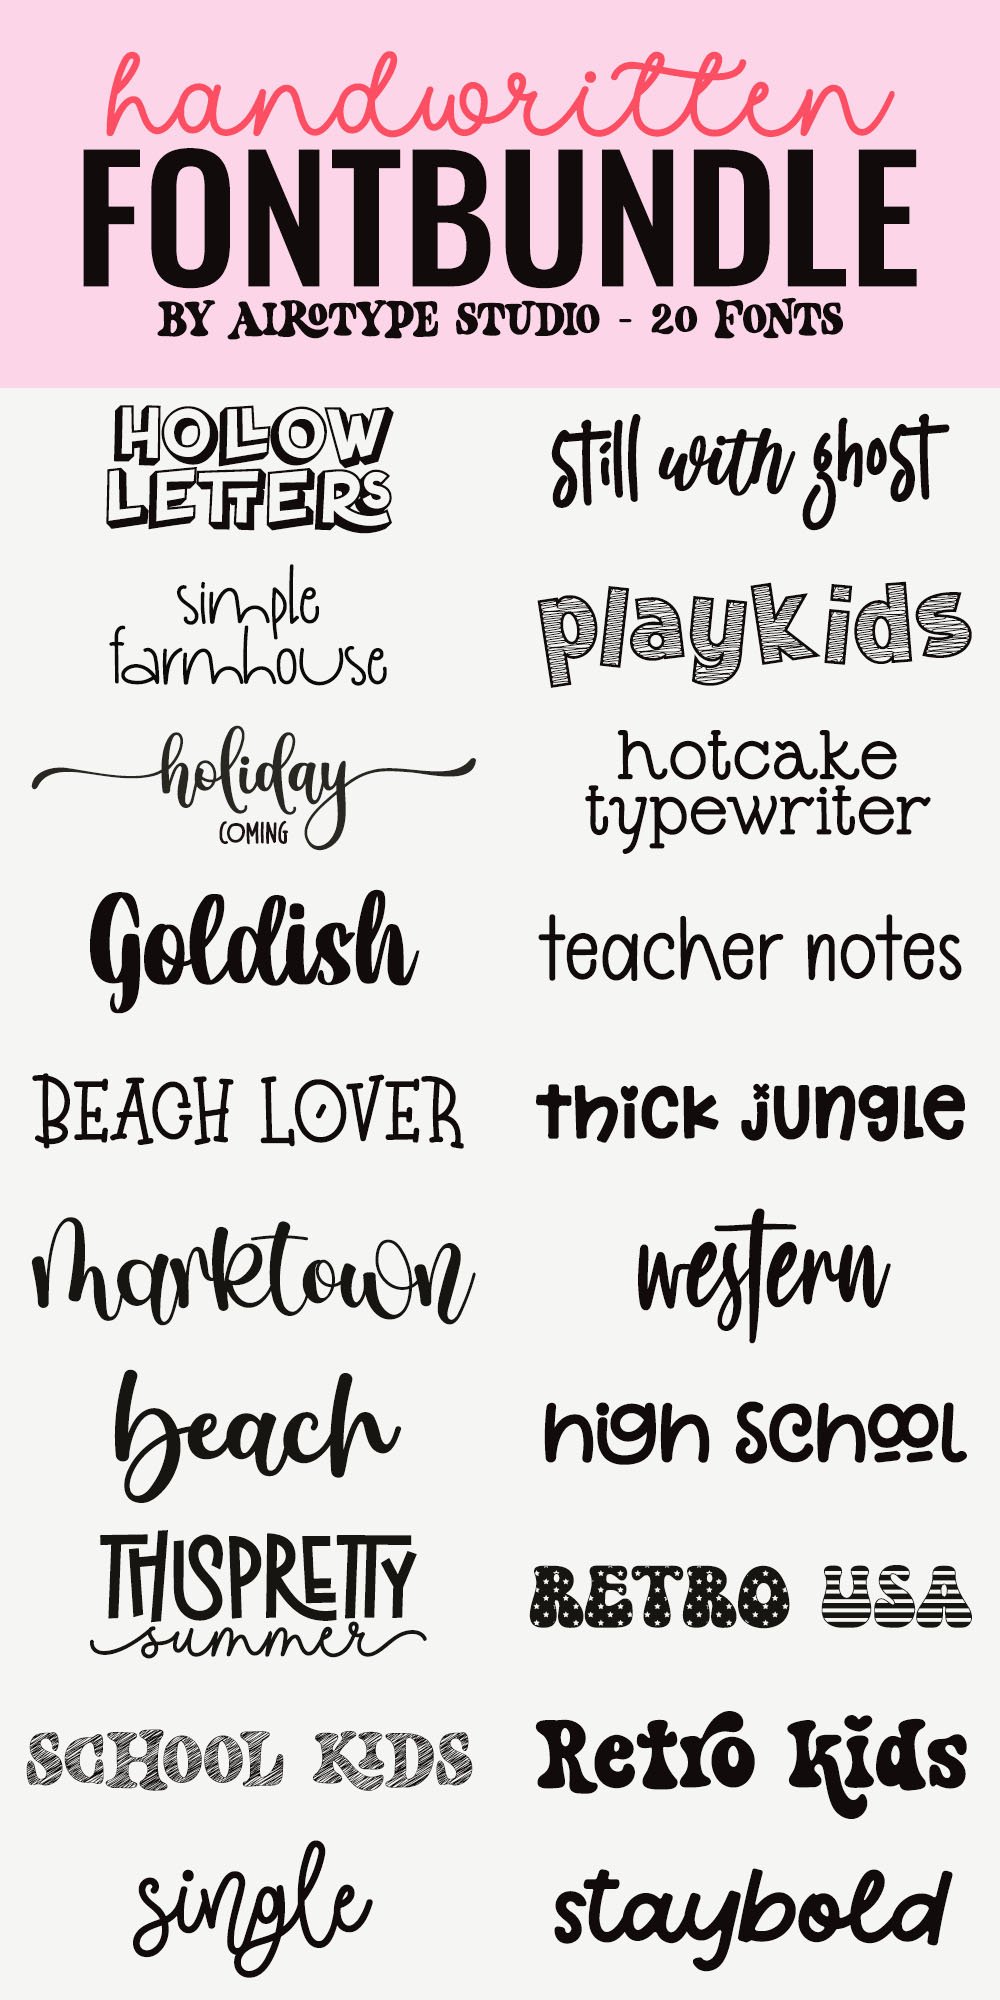 handwritten
FONTBUNDLE
BY AIROTYPE STUDIO - 20 FONTS
HOLLOW
LETTERS
still with ghost
simple
farmhouse
playkids
holiday
COMING
hotcake
typewriter
Goldish
teacher notes
BEACH LOVER
thick jungle
Marktown
western
beach
high school
THISPRETTY
summer
RETRO USA
SCHOOL KIDS
Retro kids
single
staybold